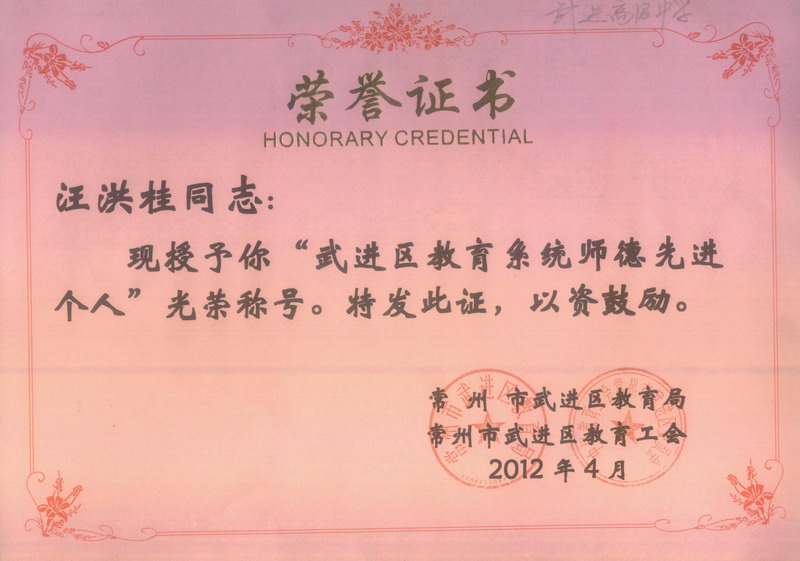 武进高级中学
荣誉证书
HONORARY CREDENTIAL
汪洪桂同志:
现授予你“武进区教育系统师德先进
个人”光荣称号。特发此证,以资鼓励。
常州 市武进区教育局
常州市武进区教育工会
2012 年 4 月
常州市武进区教育局